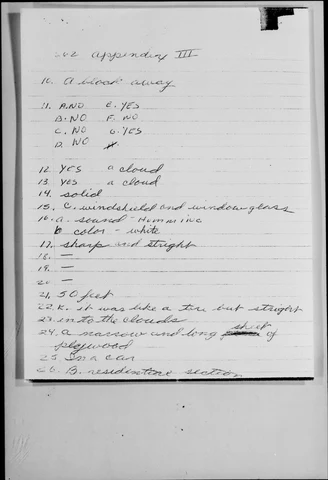 appendix III
10. a block away
11. A. NO E. YES
B. NO F. NO
C. NO G. YES
D. NO
12. YES a cloud
13. YES a cloud
14. solid
15. C. windshield and window glass
16. a. sound - Humming
b color - white
17. sharp and stright
18. —
19. —
20. —
21. 50 feet
22. K. it was like a tire but straight
23. into the clouds
24. a narrow and long sheet of
plywood
25. In a car
26. B. residentine section